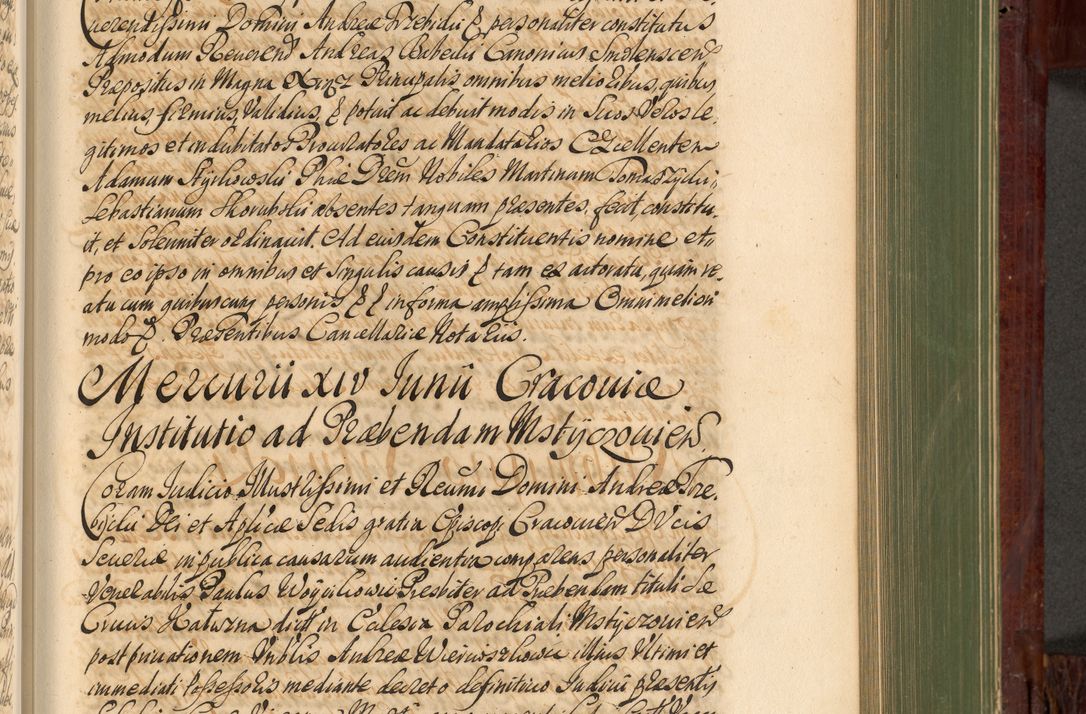 Reverendissimi Domini Andreæ Trebicki & personaliter constitutus
Admodum Reverend Andreas Canonicus Smolenscen
Præpositus in Magna Principalis omnibus melioribus, quibus
melius, firmius, validius, & potuit ac debuit modis in suos veros le,
gitimos et indubitatos Procuratores ac Mandatarios Excellentem
Adamum Phiæ Drem Nobiles Martinum
Sebastianum absentes tanquam præsentes, fecit, constitu,
it, et solenniter ordinauit. Ad eiusdem Constituentis nomine et,
pro eo ipso in omnibus et singulis causis & tam ex actoratu, quam re
atu cum quibuscunq personis & & in forma amplissima Omni meliori
modo &. Præsentibus Cancellariæ Notariis.
Mercurii XIV Junii Cracouiæ
Institutio ad Præbendam Mstyczouien
Coram Judicio Illustrissimi et Reuml Domini Andreæ Tre,
bicki Dei et Aplicæ Sedis gratia Episcopi Cracouien Ducis
Seueriæ in publica causarum audientia comparens personaliter
Venerabilis Paulus Presbiter ad Præbendam tituli Stæ
Crucis dict in Eclesia Parochiali Mstyczouien
post priuationem Vnblis Andreæ illius Vltimi et
immediati Possessoris mediante decreto definitiuo Judicii præsentis